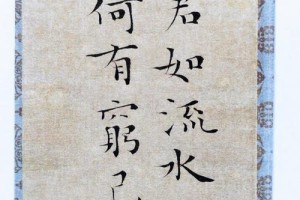 君如流水
何有窮已